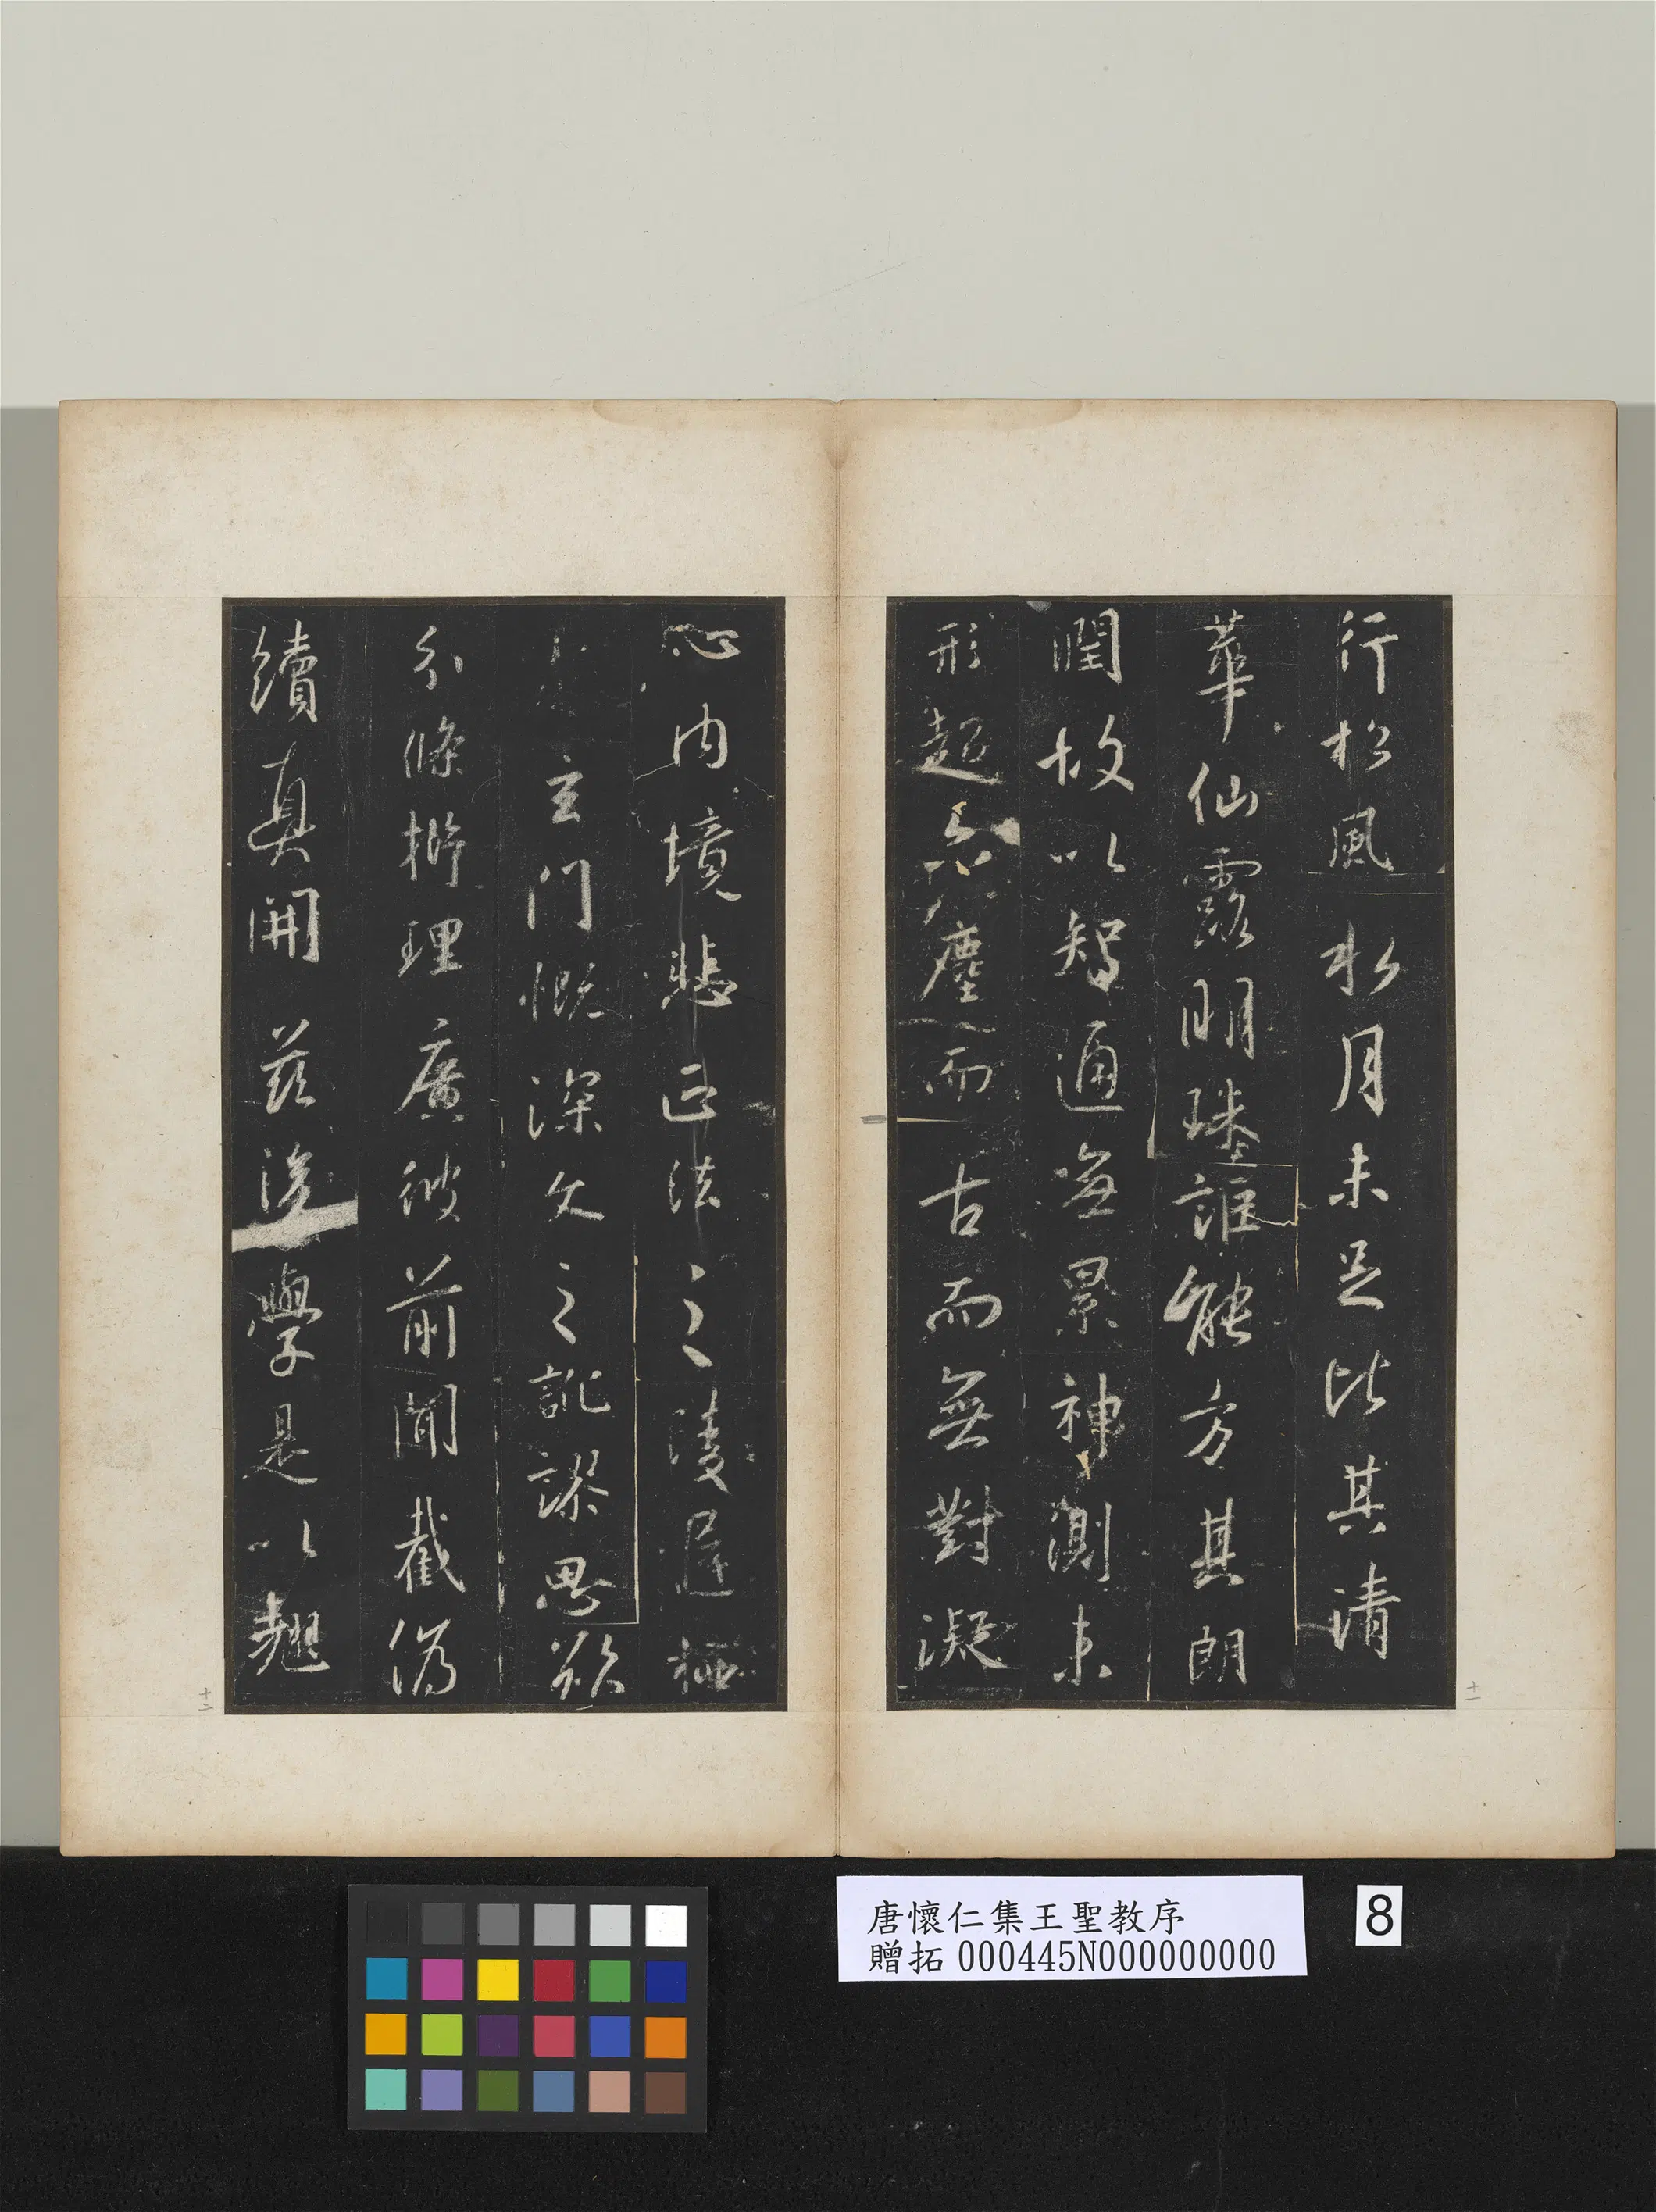 行松風水月未足比其清
華仙露明珠詎能方其朗
潤故以智通無累神測未
形超六塵而古而無對凝
十一
心內境悲正法之陵遲栖
玄門慨深文之訛謬思欲
分條析理廣彼前聞截偽
續真開茲後學是以翹
十二
唐懷仁集王聖教序
贈拓 000445N000000000
8